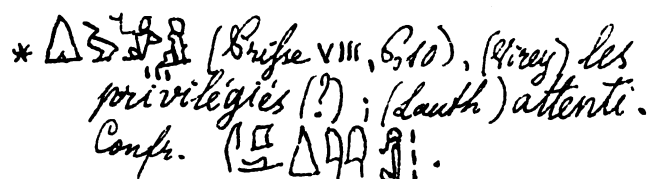 * (Prisse VIII, 6,10), (Virey) les
privilégiés (?) ; (Lauth) attenti.
Confr.